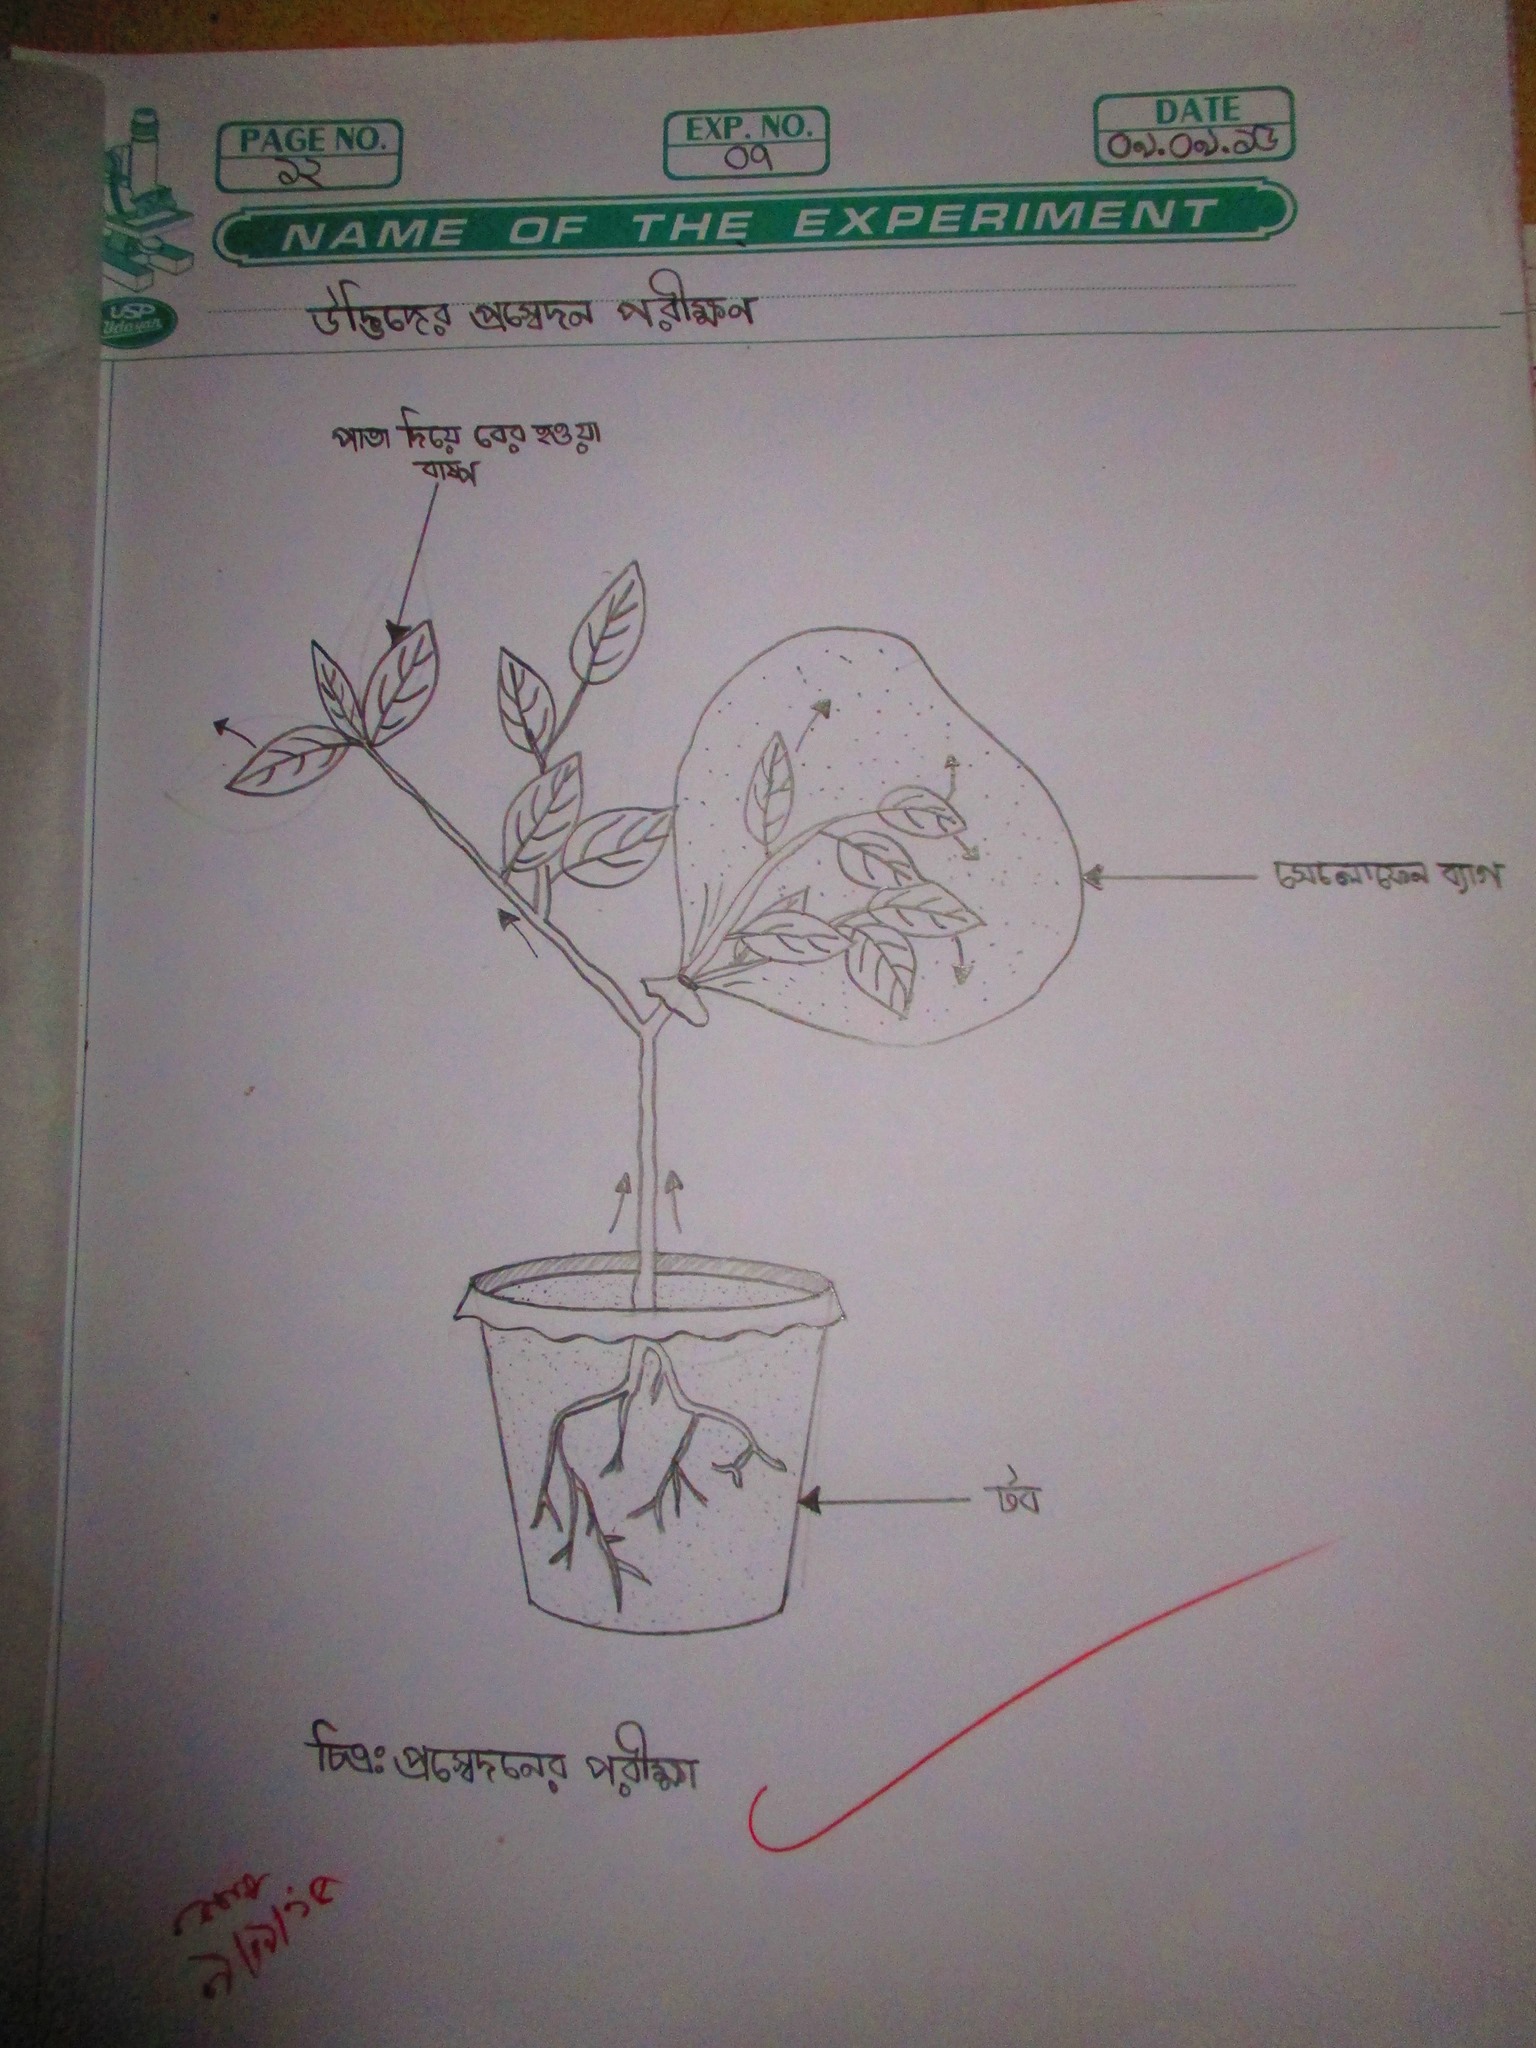 PAGE NO.
১২
EXP. NO.
০৭
DATE
০৯.০৯.১৫
NAME OF THE EXPERIMENT
USP
Udayan
উদ্ভিদের প্রস্বেদন পরীক্ষন
পাতা দিয়ে বের হওয়া
বাষ্প
সেলোফেন ব্যাগ
টব
চিত্রঃ প্রস্বেদনের পরীক্ষা